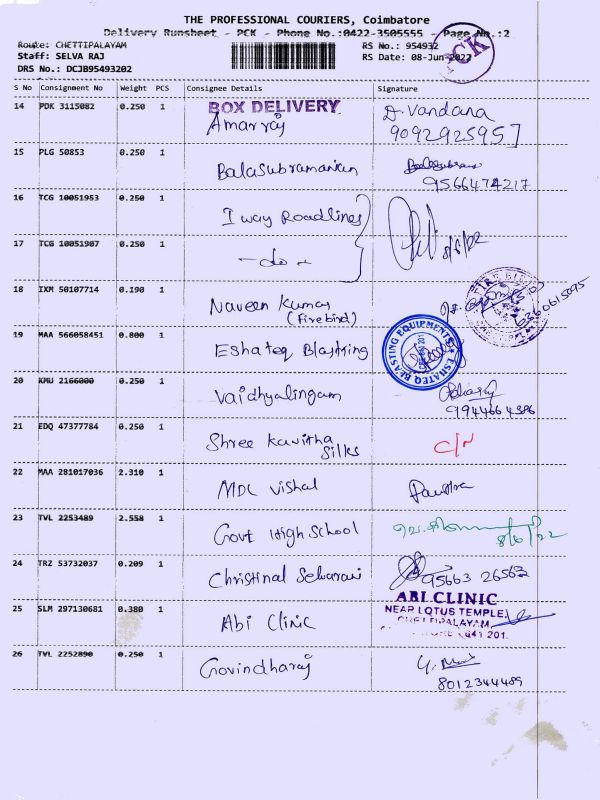 THE PROFESSIONAL COURIERS, Coimbatore
Delivery Runsheet - PCK - Phone No.:0422-3505555 - Page No.:2
Route: CHETTIPALAYAM
RS No.: 954932
PCK
Staff: SELVA RAJ
RS Date: 08-Jun-2022
DRS No.: DCJB95493202
S No Consignment No Weight PCS Consignee Details Signature
14 PDK 3115082 0.250 1 BOX DELIVERY D. Vandana
Amarraj 9092925957
15 PLG 50853 0.250 1
Balasubramanian
9566474217
16 TCG 10051953 0.250 1
I way Roadlines
8/6/22
17 TCG 10051907 0.250 1
-do-
18 IXM 50107714 0.190 1
Naveen Kumar
(Firebird) 6360615095
19 MAA 566058451 0.800 1
Eshateq Blasting ESHATEQ BLASTING EQUIPMENTS
20 KMU 2166000 0.250 1
Vaidhyalingam
9944664386
21 EDQ 47377784 0.250 1
Shree Kavitha
Silks
22 MAA 281017036 2.310 1
MDC Vishal
23 TVL 2253489 2.558 1
Govt High School
8/6/22
24 TRZ 53732037 0.209 1
Christinal Selvarani 95663 26562
25 SLM 297130681 0.380 1 ABI CLINIC
NEAR LOTUS TEMPLE,
Abi Clinic CHETTIPALAYAM,
641 201.
26 TVL 2252890 0.250 1
Govindharaj
8012344489